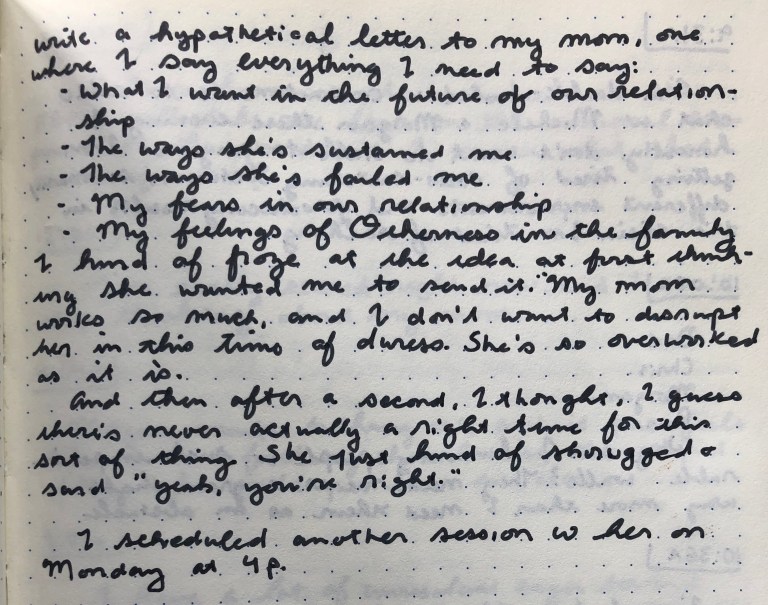 write a hypothetical letter to my mom, one
where I say everything I need to say:
- What I want in the future of our relation-
ship
- The ways she's sustained me
- The ways she's failed me
- My fears in our relationship
- My feelings of Otherness in the family
I kind of froze at the idea at first think-
ing she wanted me to send it. "My mom
works so much, and I don't want to disrupt
her in this time of duress. She's so overworked
as it is.
And then after a second, I thought, I guess
there's never actually a right time for this
sort of thing. She just kind of shrugged &
said "yeah, you're right."
I scheduled another session w her on
Monday at 4p.